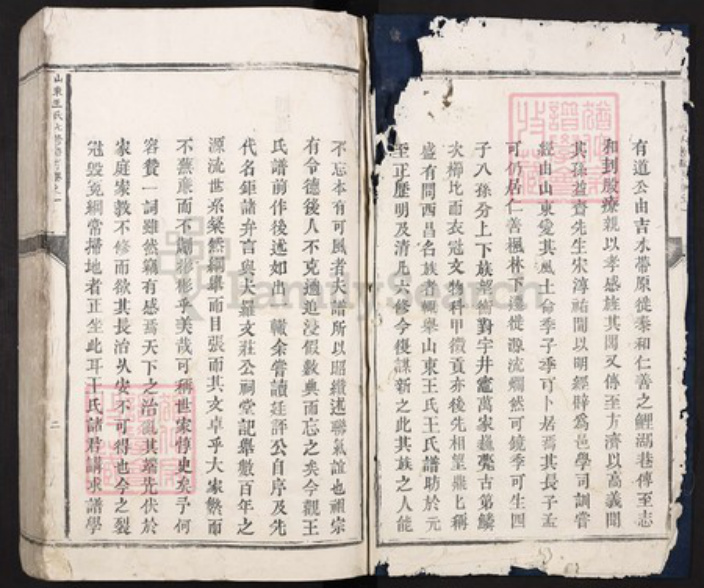 有道公由吉水帶原徙泰和仁善之鯉湖巷傳至志
和刲股療親以孝感旌其閭又傳至方濟以高義聞
其孫益齋先生宋淳祐間以明經辟為邑學司訓嘗
經由山東愛其風土命季子季可卜居焉其長子孟
可仍居仁善楓林下遷徙源流爛然可鏡季可生四
子八孫分上下族望衡對宇井竈萬家
次櫛比而衣冠文物科甲徵貢亦後先相望雖匕稱
盛有問西昌名族者輒舉山東王氏王氏譜昉於元
至正歷明及清凡六修今復謀新之此其族之人能
不忘本有可風者夫譜所以昭繼述聯氣誼也祖宗
有令德後人不克遹追浸假數典而忘之矣今觀王
氏譜前作後述如出一轍余嘗讀廷評公自序及先
代名鉅諸弁言與夫羅文莊公祠堂記舉數百年之
源流世系粲然綱舉而目張而其文卓乎大家繁而
不蕪廉而不劌彬彬乎美哉可稱世家惇史矣予何
容贊一詞雖然竊有感焉天下之治亂其端先伏於
家庭家教不修而欲其長治久安不可得也今之裂
冠毀冕綱常掃地者正坐此耳王氏諸君講求譜學
二
FamilySearch